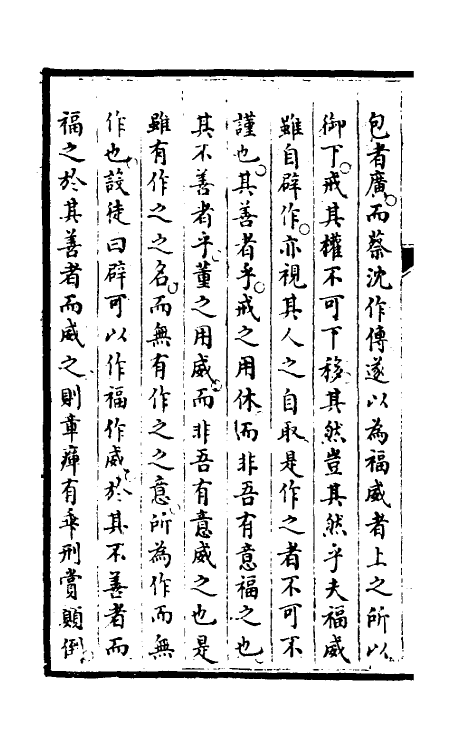 包者廣而蔡沈作傳遂以為福威者上之所以
御下戒其權不可下移其然豈其然乎夫福威
雖自辟作亦視其人之自取是作之者不可不
謹也其善者乎戒之用休而非吾有意福之也
其不善者乎董之用威而非吾有意威之也是
雖有作之之名而無有作之之意所為作而無
作也設徒曰辟可以作福作威於其不善者而
福之於其善者而威之則章癉有乖刑賞顛倒